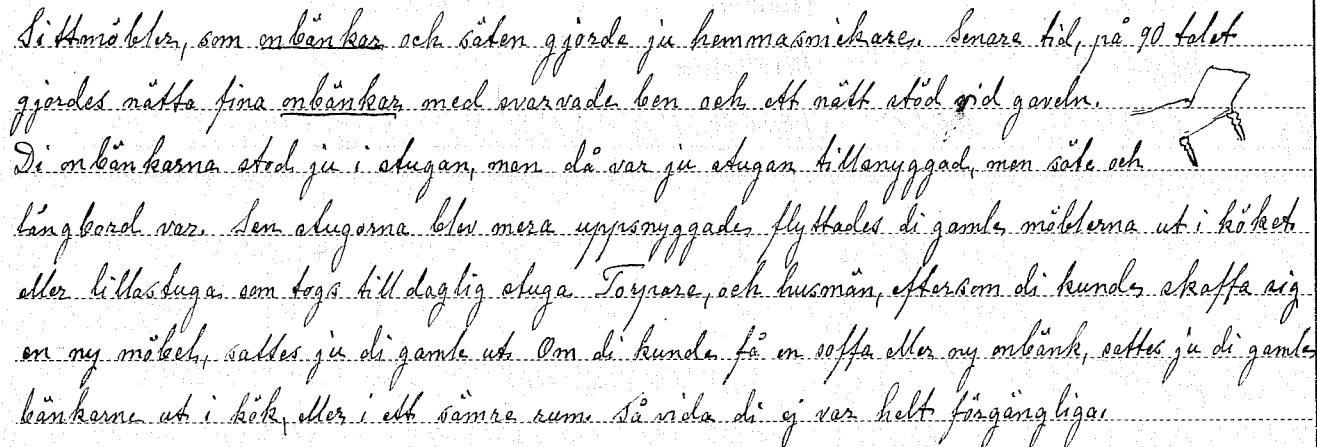 Sittmöbler, som onbänkar och säten gjorde ju hemmasnickare. Senare tid, på 90 talet
gjordes nätta fina onbänkar med svarvade ben och ett nätt stöd vid gaveln.
Di onbänkarna stod ju i stugan, men då var ju stugan tillsnyggad, men säte och
långbord var. Sen stugorna blev mera uppsnyggade, flyttades di gamle möblerna ut i köket
eller lillastuga som togs till daglig stuga. Torpare, och husmän, eftersom di kunde, skaffa sig
en ny möbel, sattes ju di gamle ut. Om di kunde få en soffa eller ny onbänk, sattes ju di gamle
bänkarne ut i kök, eller i ett sämre rum. Så vida di ej var helt förgängliga.